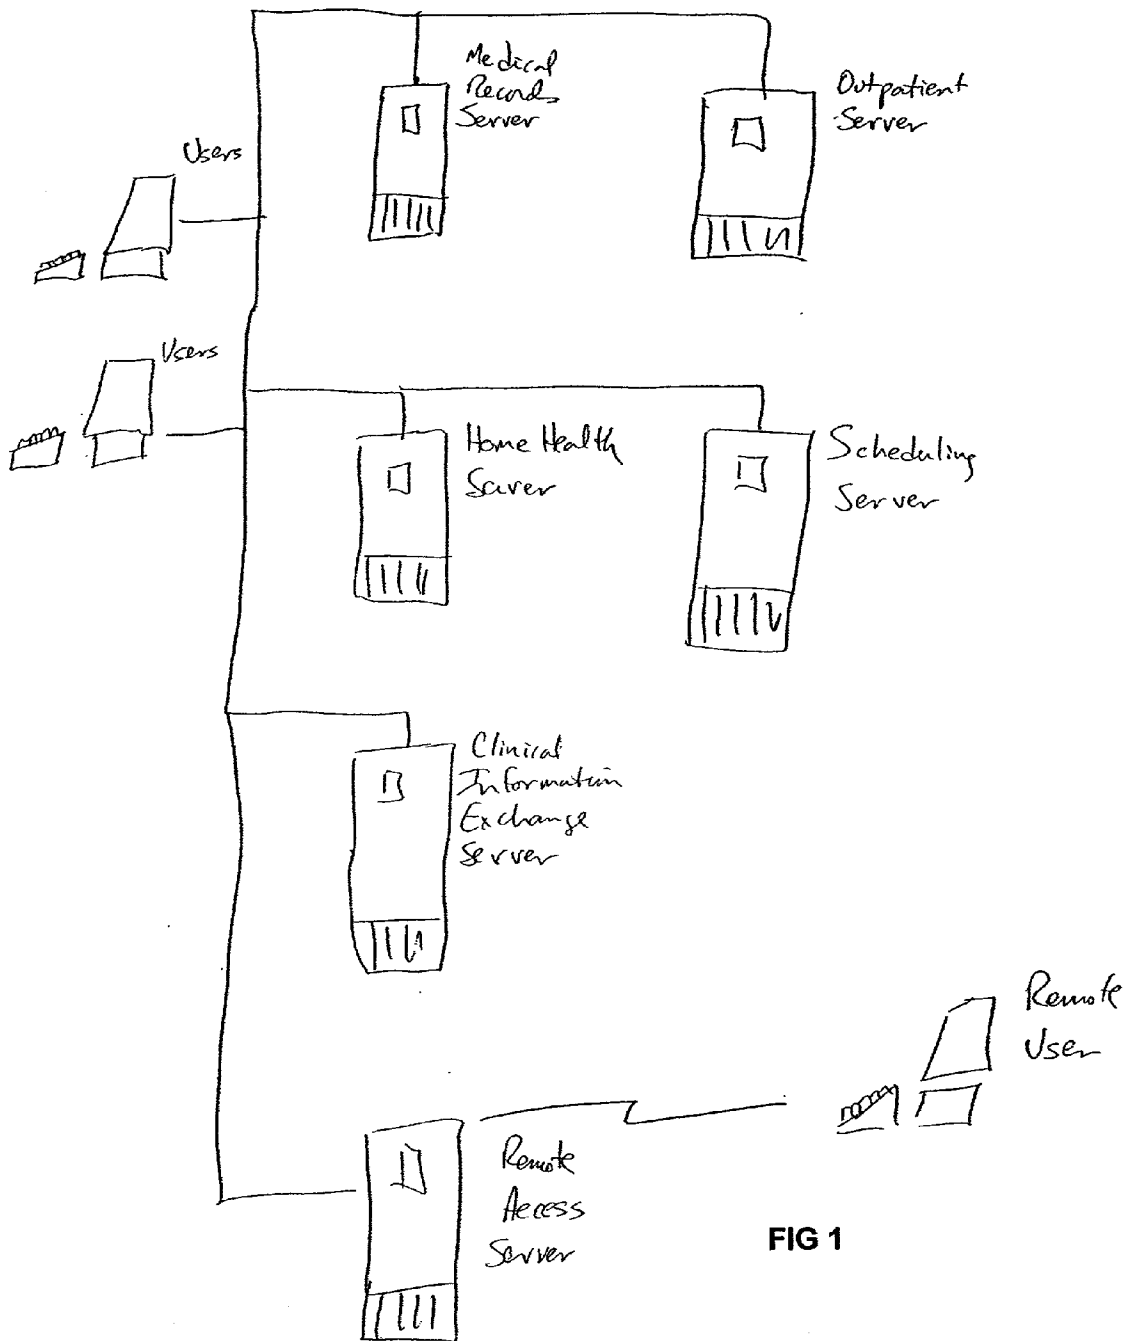 Medical
Records
Server
Outpatient
Server
Users
Users
Home Health
Server
Scheduling
Server
Clinical
Information
Exchange
Server
Remote
User
Remote
Access
Server
FIG 1